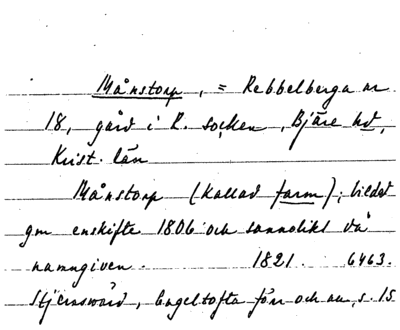 Månstorp, = Rebbelberga nr
18, gård i R. socken, Bjäre hd,
Krist. län
Månstorp (kallad farm); bildat
gm enskifte 1806 och sannolikt då
namngiven. 1821. 6463.
Stjernswärd, Engeltofta förr och nu, s. 15